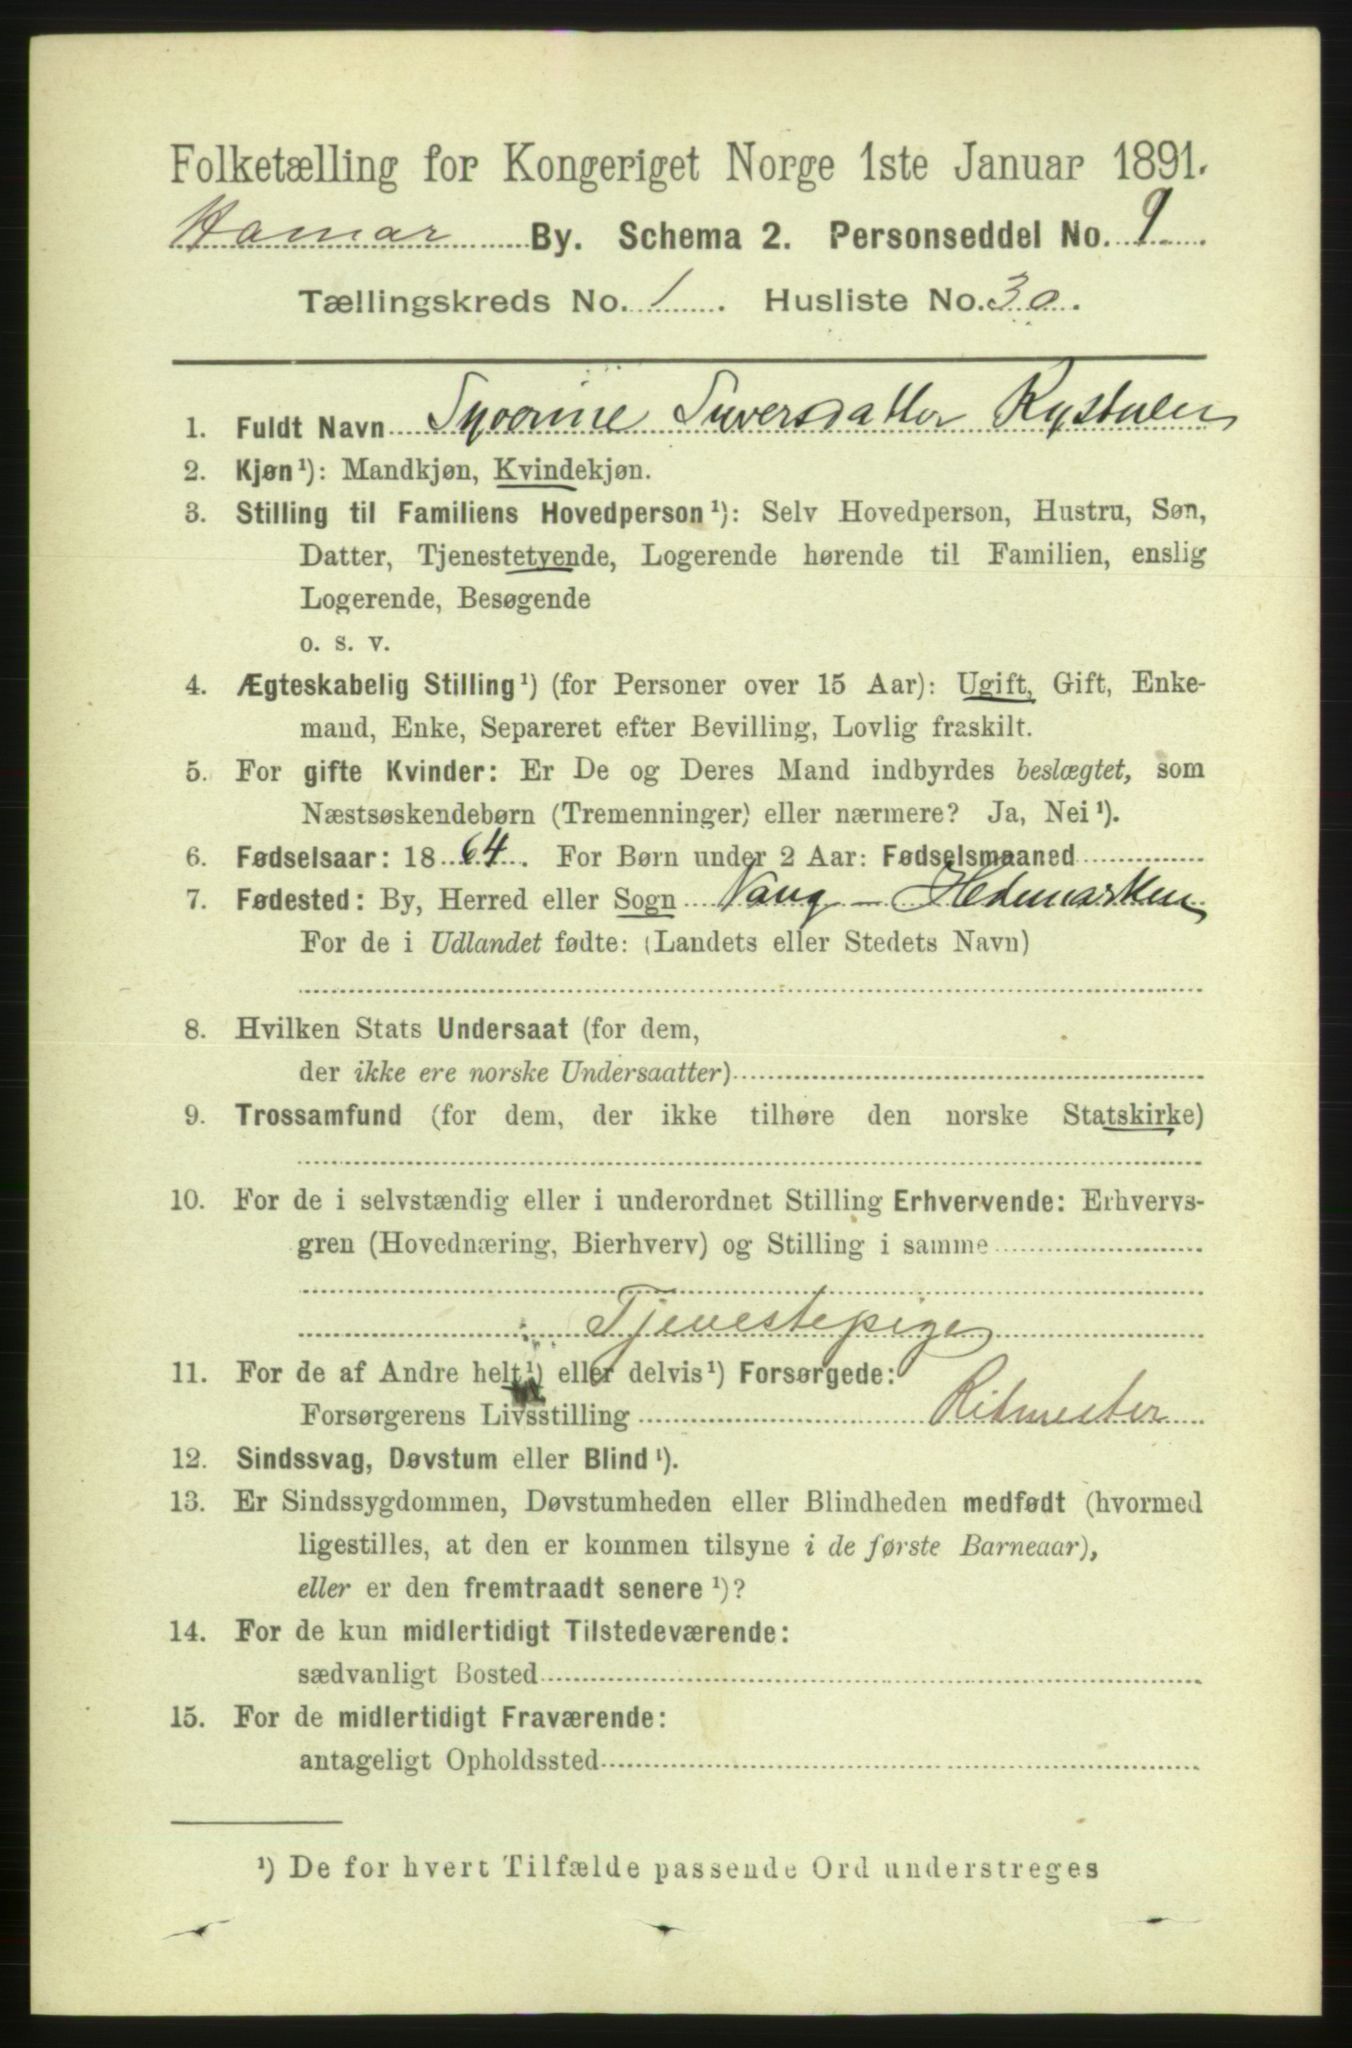 Folketælling for Kongeriget Norge 1ste Januar 1891.
Hamar By. Schema 2. Personseddel No. 9
Tællingskreds No. 1. Husliste No. 30.
1. Fuldt Navn Syverine Siversdatter Rystuen
2. Kjøn¹): Mandkjøn, Kvindekjøn.
3. Stilling til Familiens Hovedperson¹): Selv Hovedperson, Hustru, Søn,
Datter, Tjenestetyende, Logerende hørende til Familien, enslig
Logerende, Besøgende
o. s. v.
4. Ægteskabelig Stilling¹) (for Personer over 15 Aar): Ugift, Gift, Enke-
mand, Enke, Separeret efter Bevilling, Lovlig fraskilt.
5. For gifte Kvinder: Er De og Deres Mand indbyrdes beslægtet, som
Næstsøskendebørn (Tremenninger) eller nærmere? Ja, Nei¹).
6. Fødselsaar: 1864. For Børn under 2 Aar: Fødselsmaaned
7. Fødested: By, Herred eller Sogn Vang - Hedemarken
For de i Udlandet fødte: (Landets eller Stedets Navn)
8. Hvilken Stats Undersaat (for dem,
der ikke ere norske Undersaatter)
9. Trossamfund (for dem, der ikke tilhøre den norske Statskirke)
10. For de i selvstændig eller i underordnet Stilling Erhvervende: Erhvervs-
gren (Hovednæring, Bierhverv) og Stilling i samme
Tjenestepige
11. For de af Andre helt¹) eller delvis¹) Forsørgede:
Forsørgerens Livsstilling Ritmester
12. Sindssvag, Døvstum eller Blind¹).
13. Er Sindssygdommen, Døvstumheden eller Blindheden medfødt (hvormed
ligestilles, at den er kommen tilsyne i de første Barneaar),
eller er den fremtraadt senere¹)?
14. For de kun midlertidigt Tilstedeværende:
sædvanligt Bosted
15. For de midlertidigt Fraværende:
antageligt Opholdssted
¹) De for hvert Tilfælde passende Ord understreges